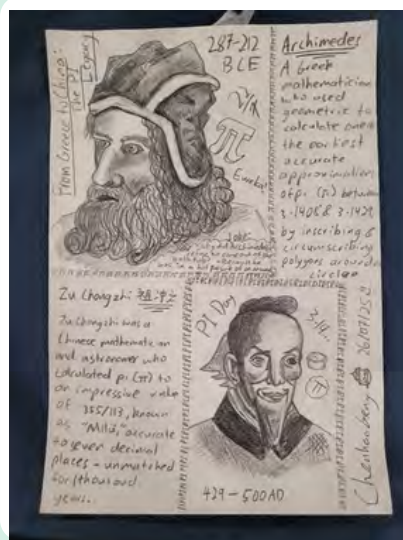 From Greece to China:
The PI
Legacy
287-212
BCE
π
Eureka!
Archimedes
A Greek
mathematician
who used
geometric to
calculate one of
the earliest
accurate
approximation
of pi (π) between
3.1408 & 3.1429
by inscribing &
circumscribing
polygons around
circles
Zu Chongzhi 祖冲之
Zu Chongzhi was a
Chinese mathematician
and astronomer who
calculated pi (π) to
an impressive value
of 355/113, known
as "Milü," accurate
to seven decimal
places - unmatched
for 1 thousand
years...
PI Day
3.14...
π
429-500AD
26/07/25